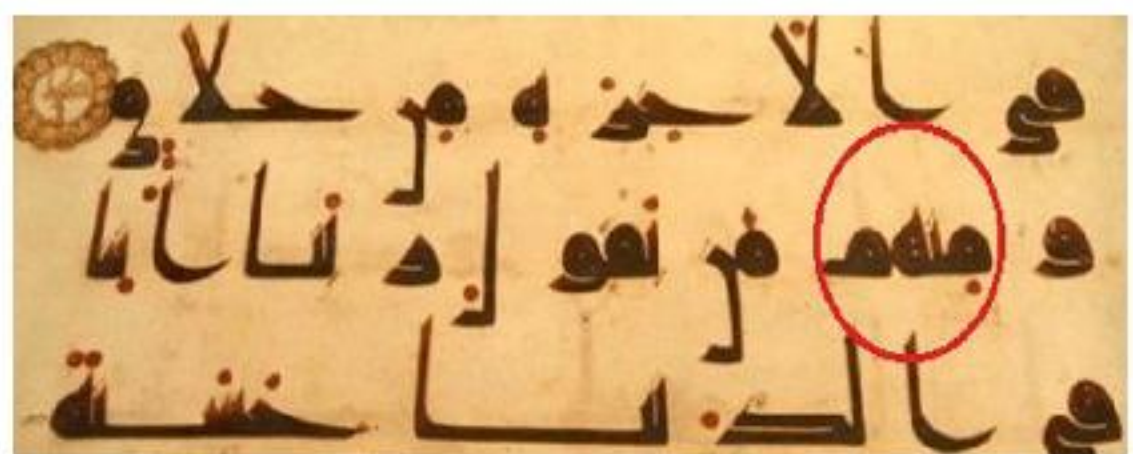 في الاخرة من خلاق
و منهم من يقول ربنا اتنا
في الدنيا حسنة